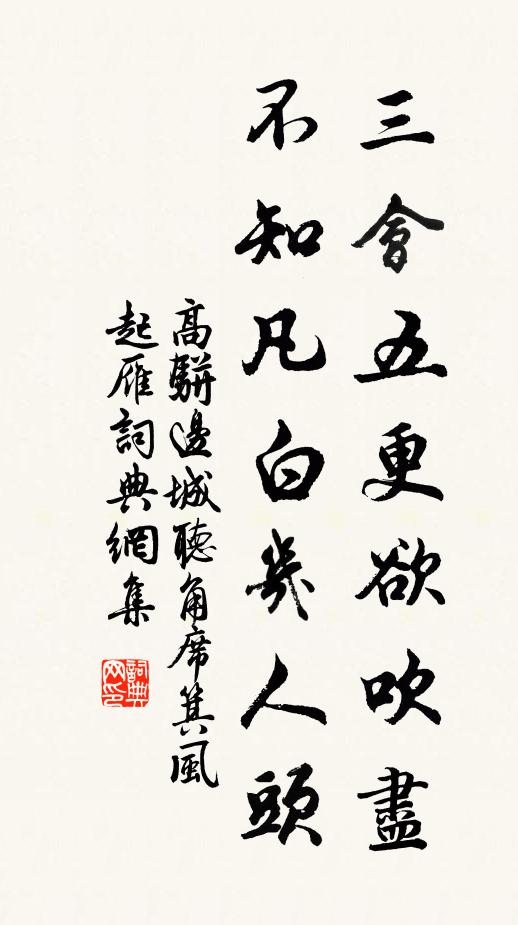 三會五更欲吹盡
不知凡白幾人頭
高駢邊城聽角席箕風
起雁詞典網集
詞典
网印